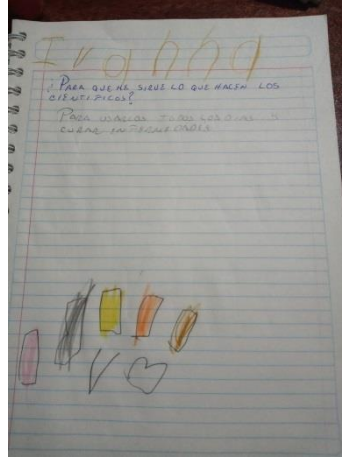 Ivanna
¿PARA QUE ME SIRVE LO QUE HACEN LOS
CIENTIFICOS?
PARA USARLOS TODOS LOS DIAS Y
CURAR ENFERMEDADES